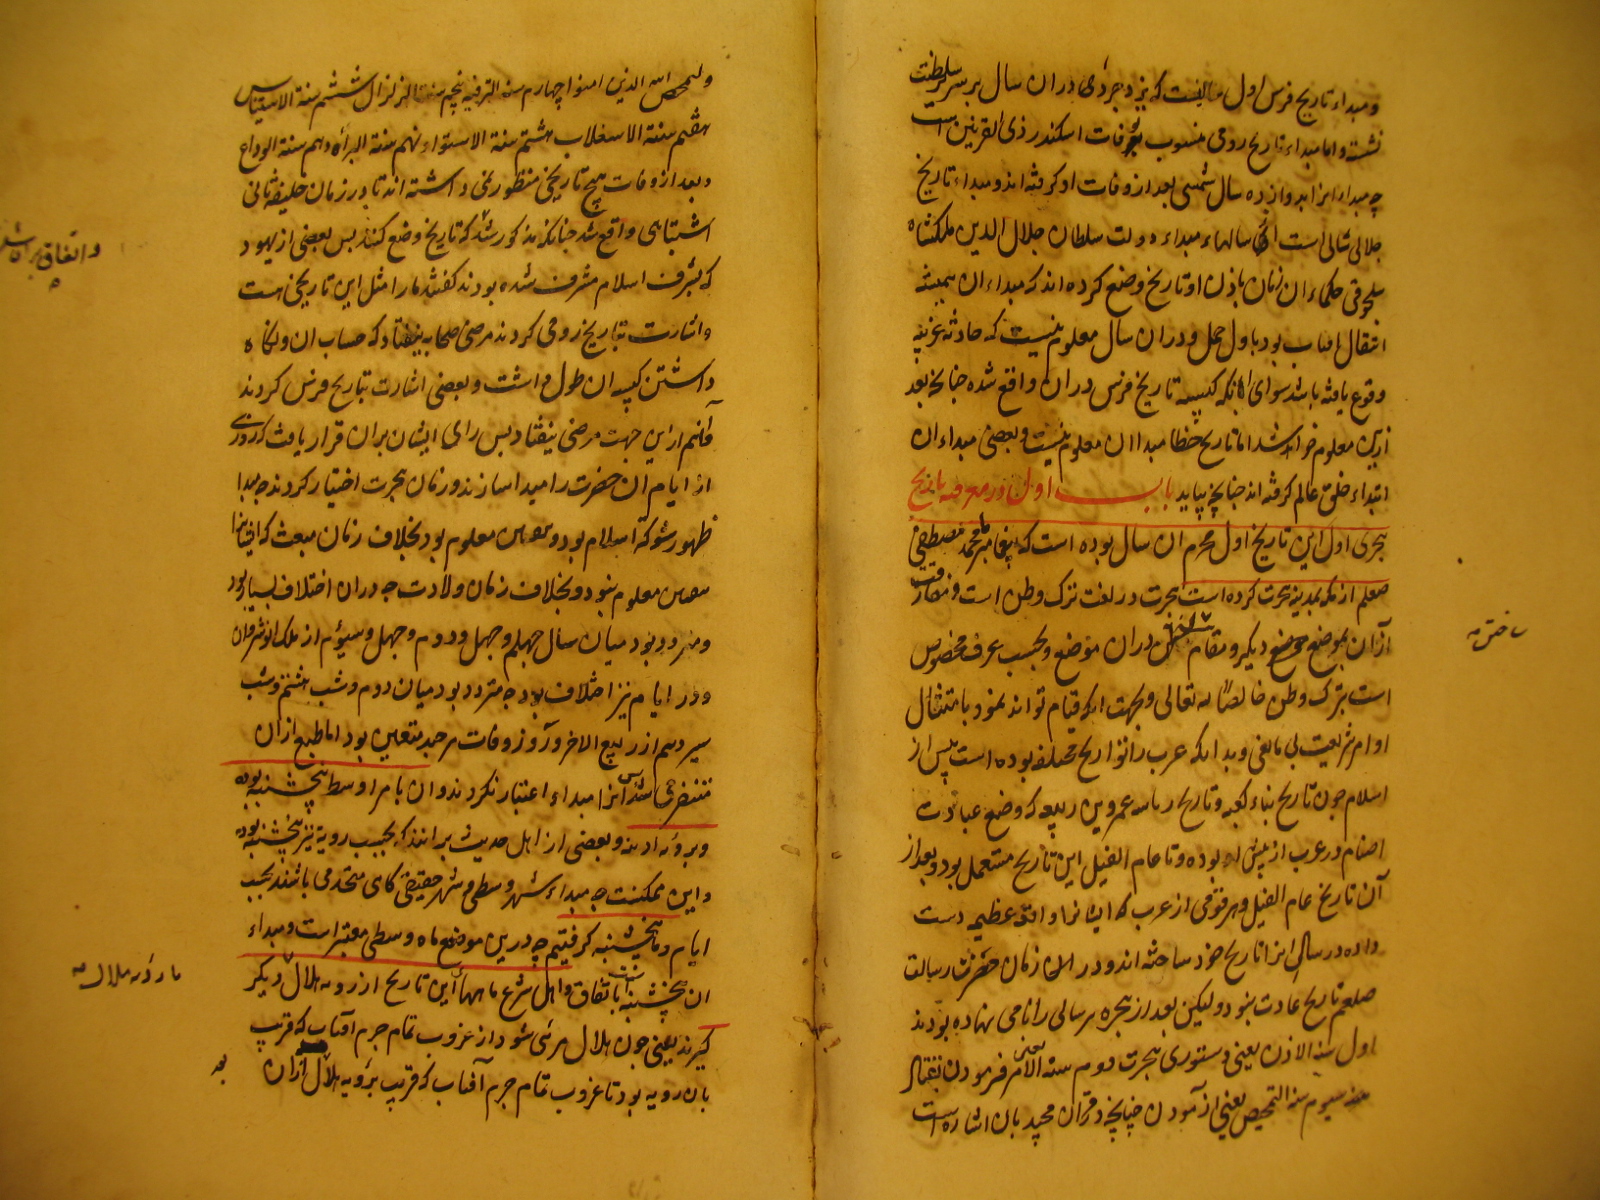 و مبداء تاریخ فرس اول سالیست که یزدجردی در ان سال بر سریر سلطنت
نشسته و اما مبداء تاریخ رومی منسوب بوفات اسکندر ذی القرنین است
چه مبداء انرا بدوازده سال شمسی بعد از وفات او کرفته اند و مبداء تاریخ
جلالی سالی است که سالهاء مبداء دولت سلطان جلال الدین ملکشاه
سلجوقی حکماء ان زمان باذن او تاریخ وضع کرده اند که مبداء ان همیشه
انتقال افتاب بود باول حمل و در ان سال معلوم نیست که حادثه غریبه
وقوع یافته باشد سوای انکه کبیسه تاریخ فرس در ان واقع شده چنانچه بعد
ازین معلوم خواهد شد اما تاریخ خطا مبدا ان معلوم نیست و بعضی مبداء ان
ابتداء خلق عالم کرفته اند چنانچه بیاید باب اول در معرفه تاریخ
هجری اول این تاریخ اول محرم ان سال بوده است که پیغامبر ما محمد مصطفی
صلعم از مکه بمدینه هجرت کرده است هجرت در لغت ترک وطن است و مفارقت
ازان بموضع دیکر و مقام در ان موضع و بحسب عرف مخصوص
است بترک وطن خالصا لله تعالی و بجهت انکه قیام تواند نمود بامتثال
اوامر شریعت بی مانعی و بدانکه عرب را تواریخ مختلفه بوده است پیش از
اسلام چون تاریخ بناء کعبه و تاریخ ریاست عمرو بن ربیعه که وضع عبادت
اصنام در عرب از پیش او بوده و تا عام الفیل این تاریخ مستعمل بود و بعد از
آن تاریخ عام الفیل و هر قومی از عرب که ایشانرا واقعه عظیمه دست
داده در سالی انرا تاریخ خود ساخته اند و در اان زمان حضرت رسالت
صلعم تاریخ عادت نبود و لیکن بعد از هجره هر سالی را نامی نهاده بودند
اول سنة الاذن یعنی دستوری هجرت دوم سنة الامر یعنی فرمودن بقتال
سیوم سنة التمحیص یعنی ازمودن چنانچه در قران مجید بان اشاره است
ساختن صح
ولیمحص الله الذین امنوا چهارم سنة الترفیه پنجم سنة الزلزال ششم سنة الاستیناس
هفتم سنة الاستغلاب هشتم سنة الاستواء نهم سنة البراة دهم سنة الوداع
و بعد از وفات هیچ تاریخی منظور نمی داشته اند تا در زمان خلیفه ثانی
اشتباهی واقع شد چنانکه مذکور شد که تاریخ وضع کنند پس بعضی از یهود
که بشرف اسلام مشرف شده بودند کفتند ما را مثل این تاریخی هست
و اشارت بتاریخ رومی کردند مرضی صحابه نیفتاد که حساب ان و نکاه
داشتن کبیسه ان طول داشت و بعضی اشارت بتاریخ فرس کردند
آنهم ازین جهت مرضی نیفتاد پس رای ایشان بران قرار یافت که روزی
از ایام ان حضرت را مبدا سازند و زمان هجرت اختیار کردند چه مبدا
ظهور شوکه اسلام بود و معین معلوم بود بخلاف زمان مبعث که ایشانرا
معین معلوم نبود و بخلاف زمان ولادت چه در ان اختلاف بسیار بود
و متردد بود میان سال چهلم و چهل و دوم و چهل و سیوم از ملک انوشروان
و در ایام نیز اختلاف بود چه متردد بود میان دوم و شب هشتم و شب
سیزدهم از ربیع الاخر و آن روز وفات هر چند متعین بود اما طبع از ان
متنفر می شد پس آنرا مبداء اعتبار نکردند و ان بامر اوسط پنجشنبه بوده
و برویه ادینه و بعضی از اهل حدیث برانند که بحسب رویه نیز پنجشنبه بوده
و این ممکنست چه مبداء شهر وسطی و شهر حقیقی کاهی متحد می باشند بحسب
ایام و ما پنجشنبه کرفتیم چه درین موضع ماه وسطی معتبر است و مبداء
ان پنجشنبه است باتفاق و اهل شرع ماههاء این تاریخ از رویه هلال دیکر
کیرند یعنی چون هلال مرئی شود از غروب تمام جرم آفتاب که قریب
بان رویه بود تا غروب تمام جرم آفتاب که قریب برویه هلال ازان
و اتفاق
تا رویه هلال صح
بعد